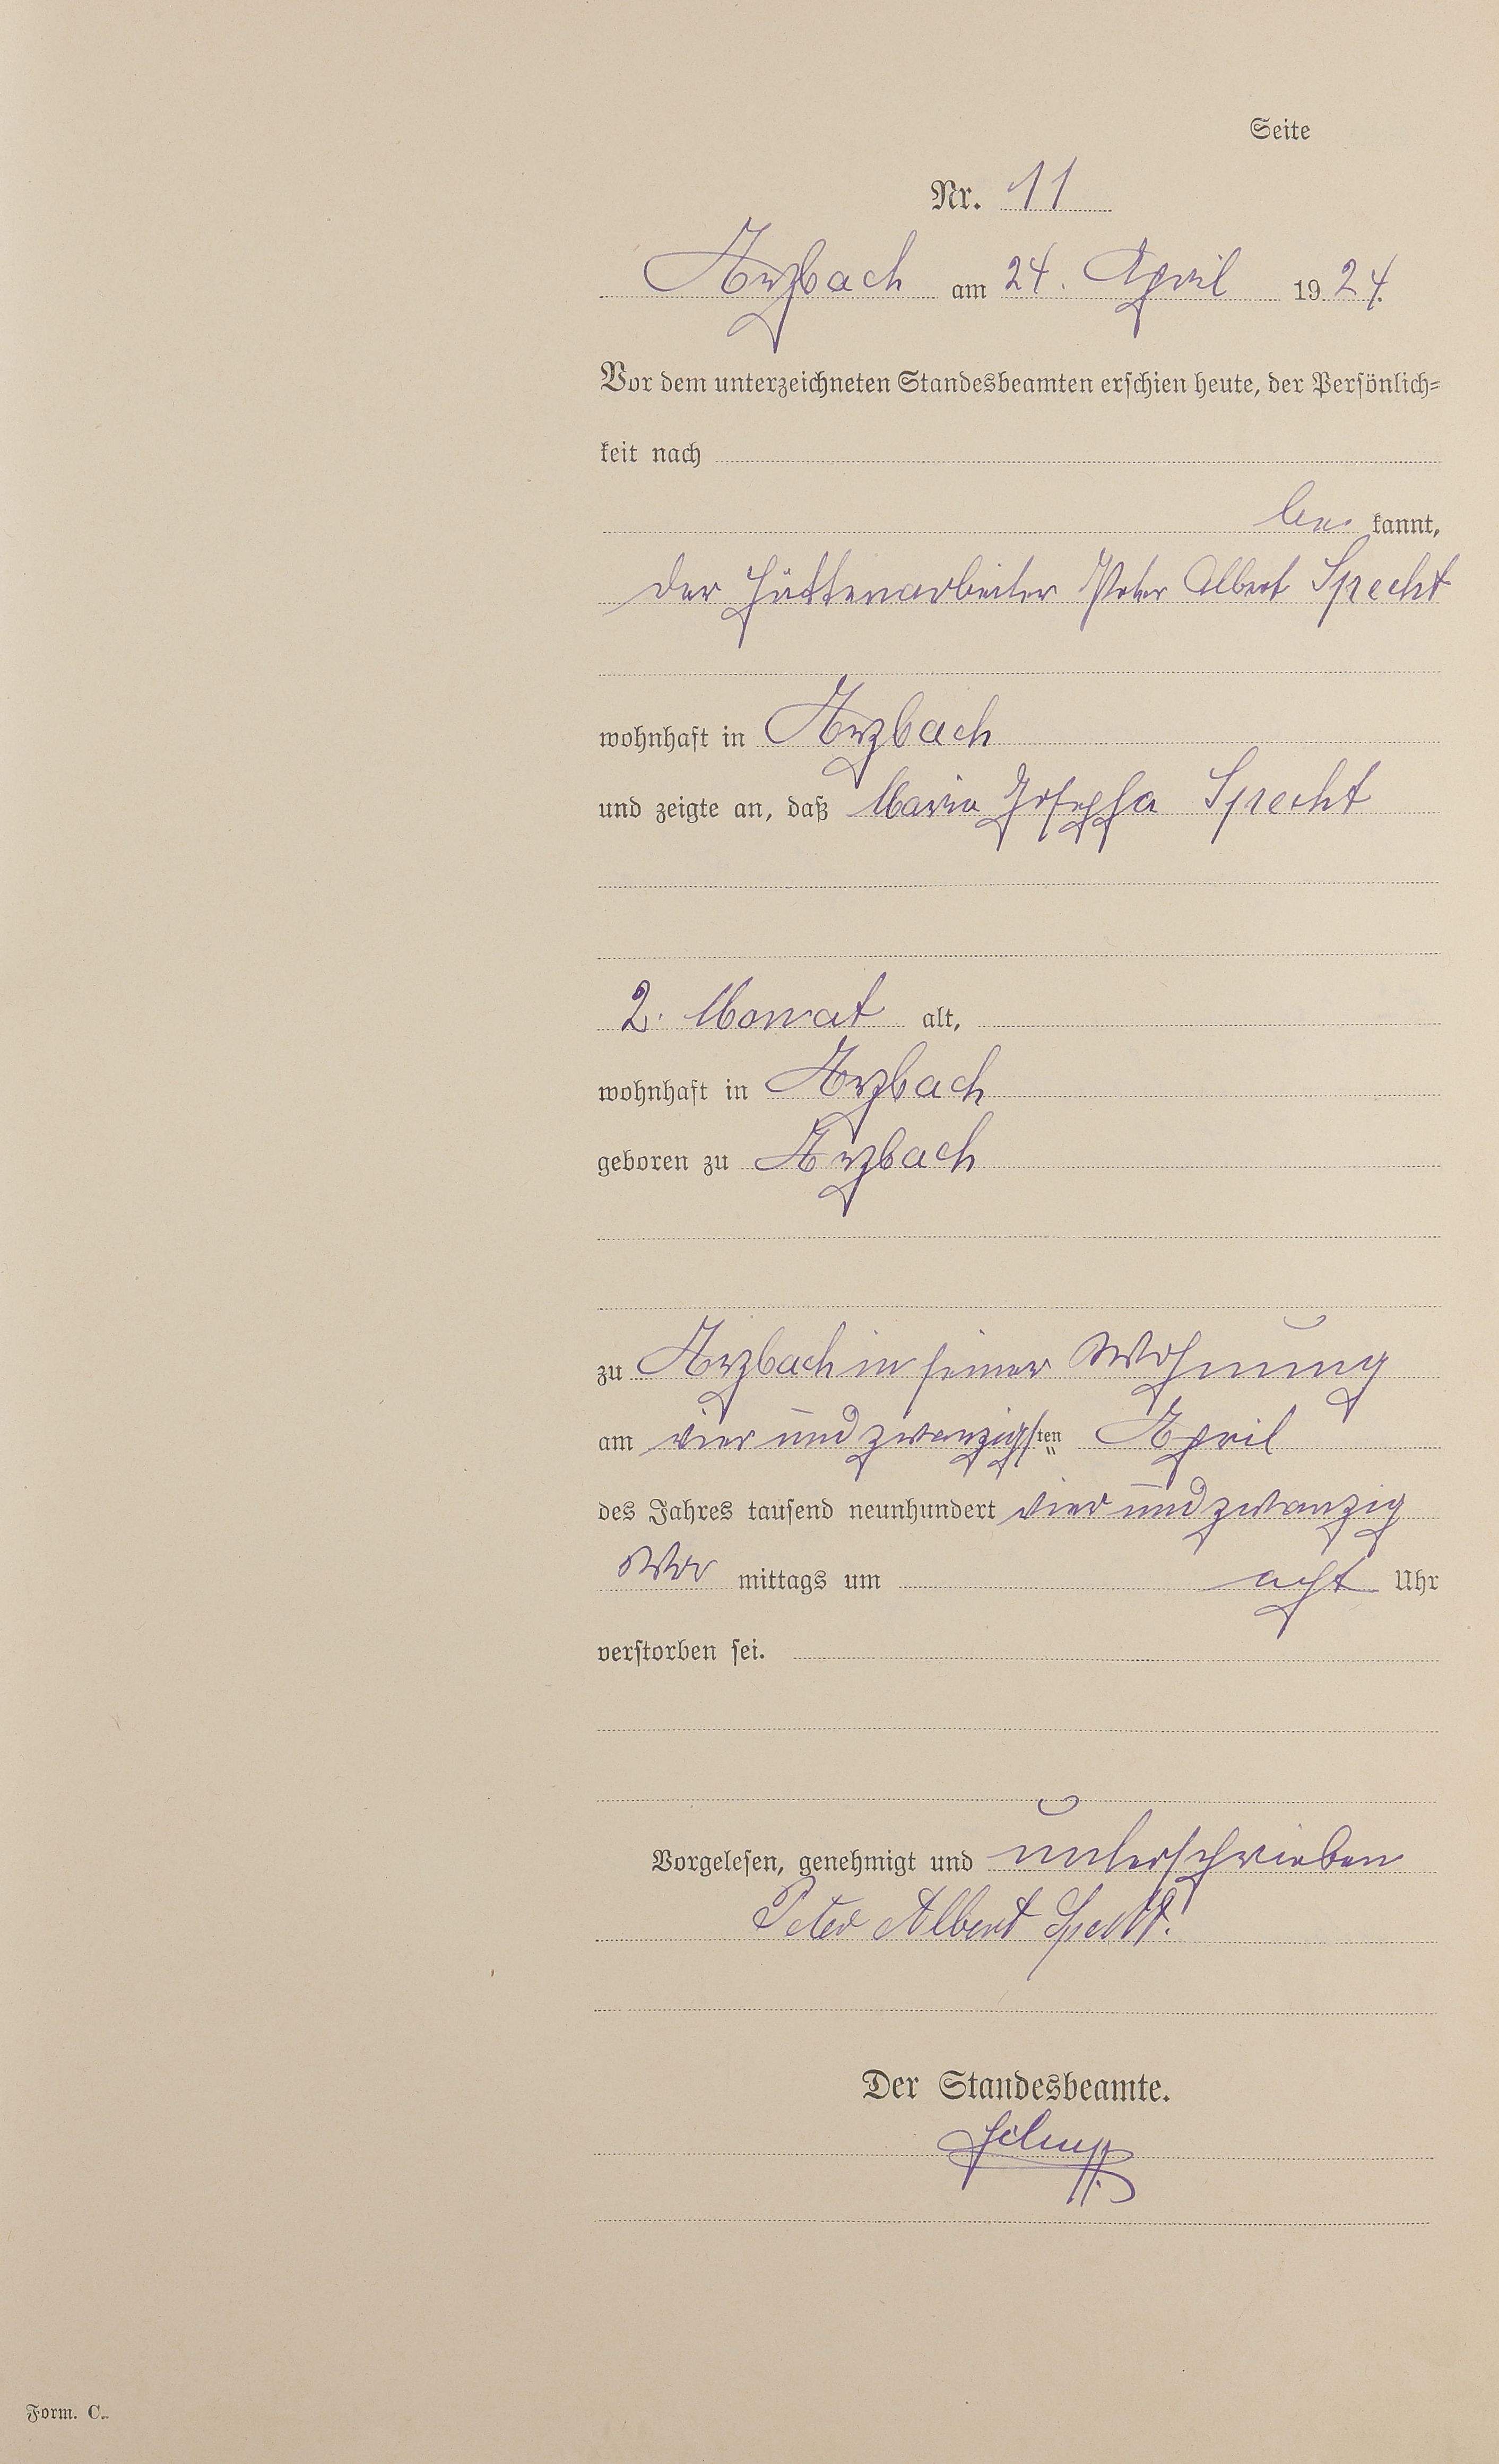 Seite
Nr. 11
Arzbach am 24. April 1924.
Vor dem unterzeichneten Standesbeamten erschien heute, der Persönlich-
keit nach
be kannt,
der Hüttenarbeiter Peter Albert Specht
wohnhaft in Arzbach
und zeigte an, daß Maria Josepha Specht
2. Monat alt,
wohnhaft in Arzbach
geboren zu Arzbach
zu Arzbach in seiner Wohnung
am vier und zwanzigsten ten April
des Jahres tausend neunhundert vier und zwanzig
Vor mittags um acht Uhr
verstorben sei.
Vorgelesen, genehmigt und unterschrieben
Peter Albert Specht.
Der Standesbeamte.
Form. C.